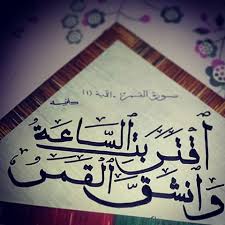 سورة القمر - الآية (١)
اقتربت الساعة
وانشق القمر